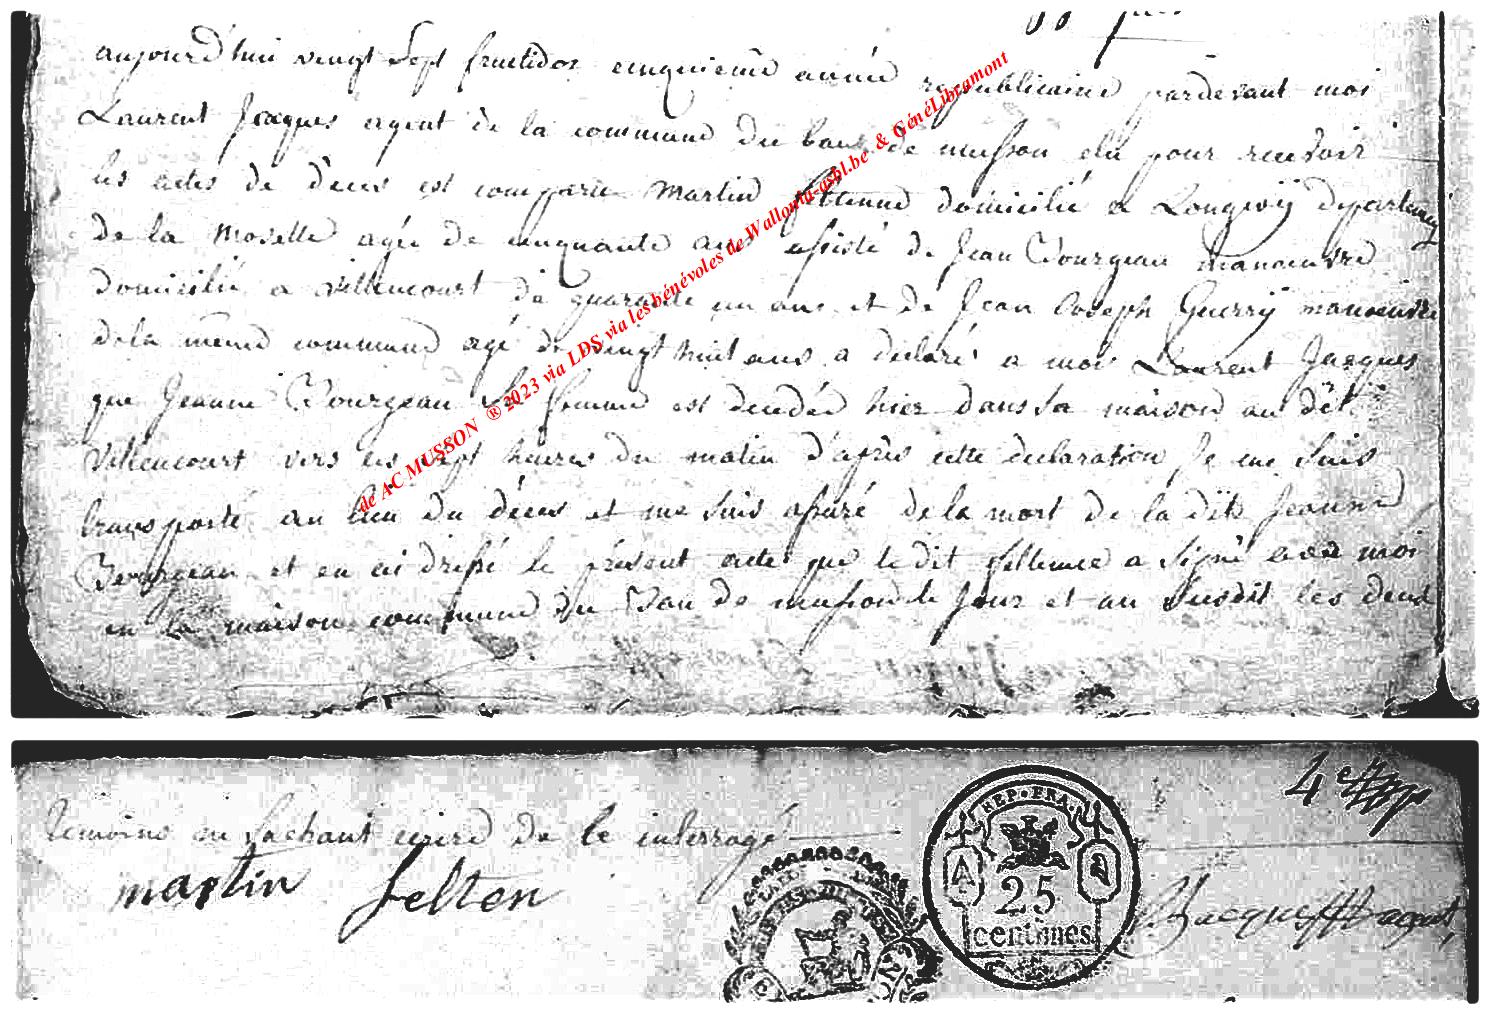 aujourd'hui vingt Sept fructidor cinquieme année republicaine pardevant moi
Laurent Jacques agent de la commune du ban de musson elu pour recevoir
les actes de décès est comparu Martin feltenne domicilié a Longwij departem
de la Moselle agée de cinquante ans assisté de Jean Bourgeau manoeuvre
domicilié a villencourt de quarante un ans et de Jean Joseph Guerrÿ manoeuvre
de la meme commune agé de vingt huit ans a declaré a moi Laurent Jacques
que Jeanne Bourgeau sa femme est decedée hier dans sa maison au dit
villencourt vers les sept heures du matin d'après cette declaration Je me suis
transporté au lieu du décès et me suis assuré de la mort de la dite Jeanne
Bourgeau et en ai dressé le présent acte que le dit feltenne a Signé avec moi
en la maison commune du Ban de musson le jour et an Susdit les deux
témoins en Sachant ecrire de ce interrogé
martin felten
Jacques agent
4e
REP. FRA.
25
centimes
de AC MUSSON ® 2023 via LDS via les bénévoles de Wallonia-asbl.be & GénéLibramont